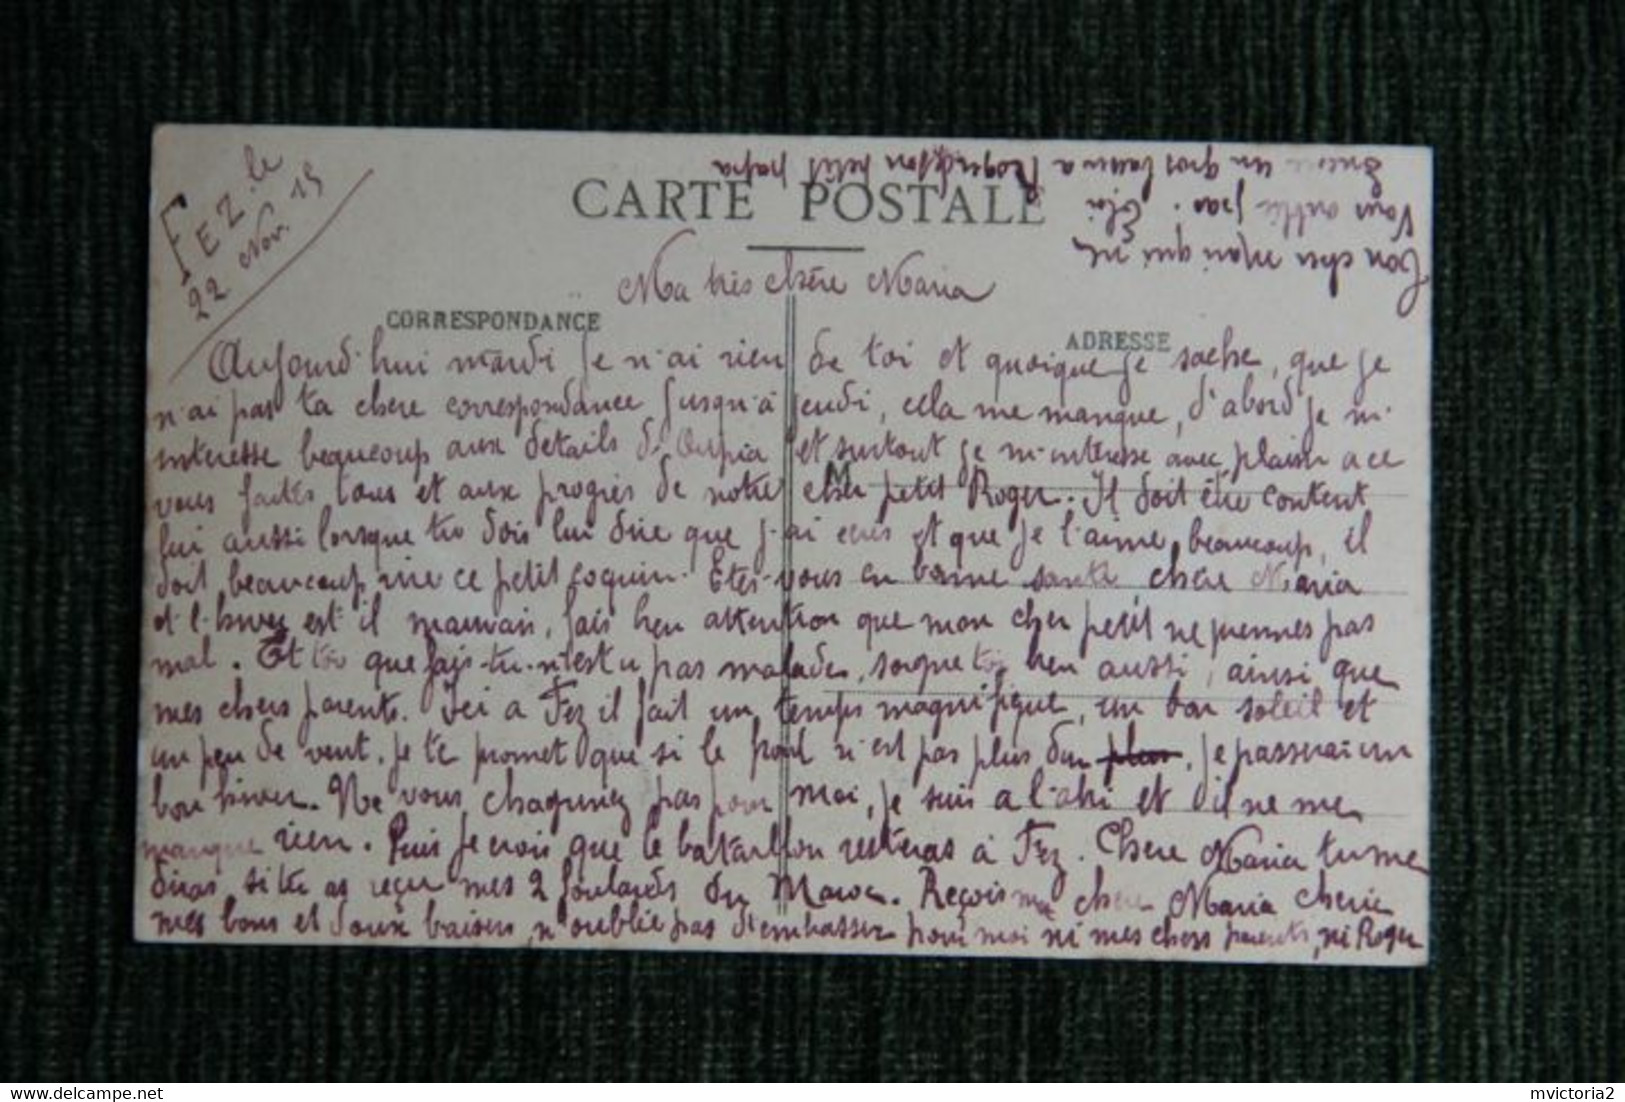 FEZ. le
22 Nov. 15
CARTE POSTALE
Ma très chère Maria
CORRESPONDANCE
ADRESSE
Aujourd'hui mardi je n'ai rien de toi et quoique je sache, que je
n'ai pas ta chère correspondance jusqu'à jeudi, cela me manque, d'abord je m'
intéresse beaucoup aux details d' et surtout je m'intéresse avec plaisir a ce
vous faites tous et aux progrès de notre cher petit Roger. Il doit être content
lui aussi lorsque tu dois lui dire que j'ai ecris et que je l'aime beaucoup, il
doit beaucoup rire ce petit coquin. Etes-vous en bonne santé, chère Maria
et l'hiver est il mauvais, fais bien attention que mon cher petit ne prennes pas
mal. Et toi que fais-tu n'est u pas malade, soigne toi bien aussi, ainsi que
mes chers parents. Ici a Fez il fait un temps magnifique, un bon soleil et
un peu de vent. je te promet que si le froid n'est pas plus dur, je passerai un
bon hiver. Ne vous chagrinez pas pour moi, je suis a l'abri et il ne me
manque rien. Puis je crois que le bataillon resteras à Fez. Chère Maria tu me
diras, si tu as reçu mes 2 foulards du Maroc. Reçois ma chère Maria cherie
mes bons et doux baisers, n'oublie pas d'embrasser pour moi ni mes chers parents, ni Roger
Ton cher mari qui ne
Vous oublie pas. Eloi
Encore un gros baiser a Roger de son petit papa
M
mvictoria2